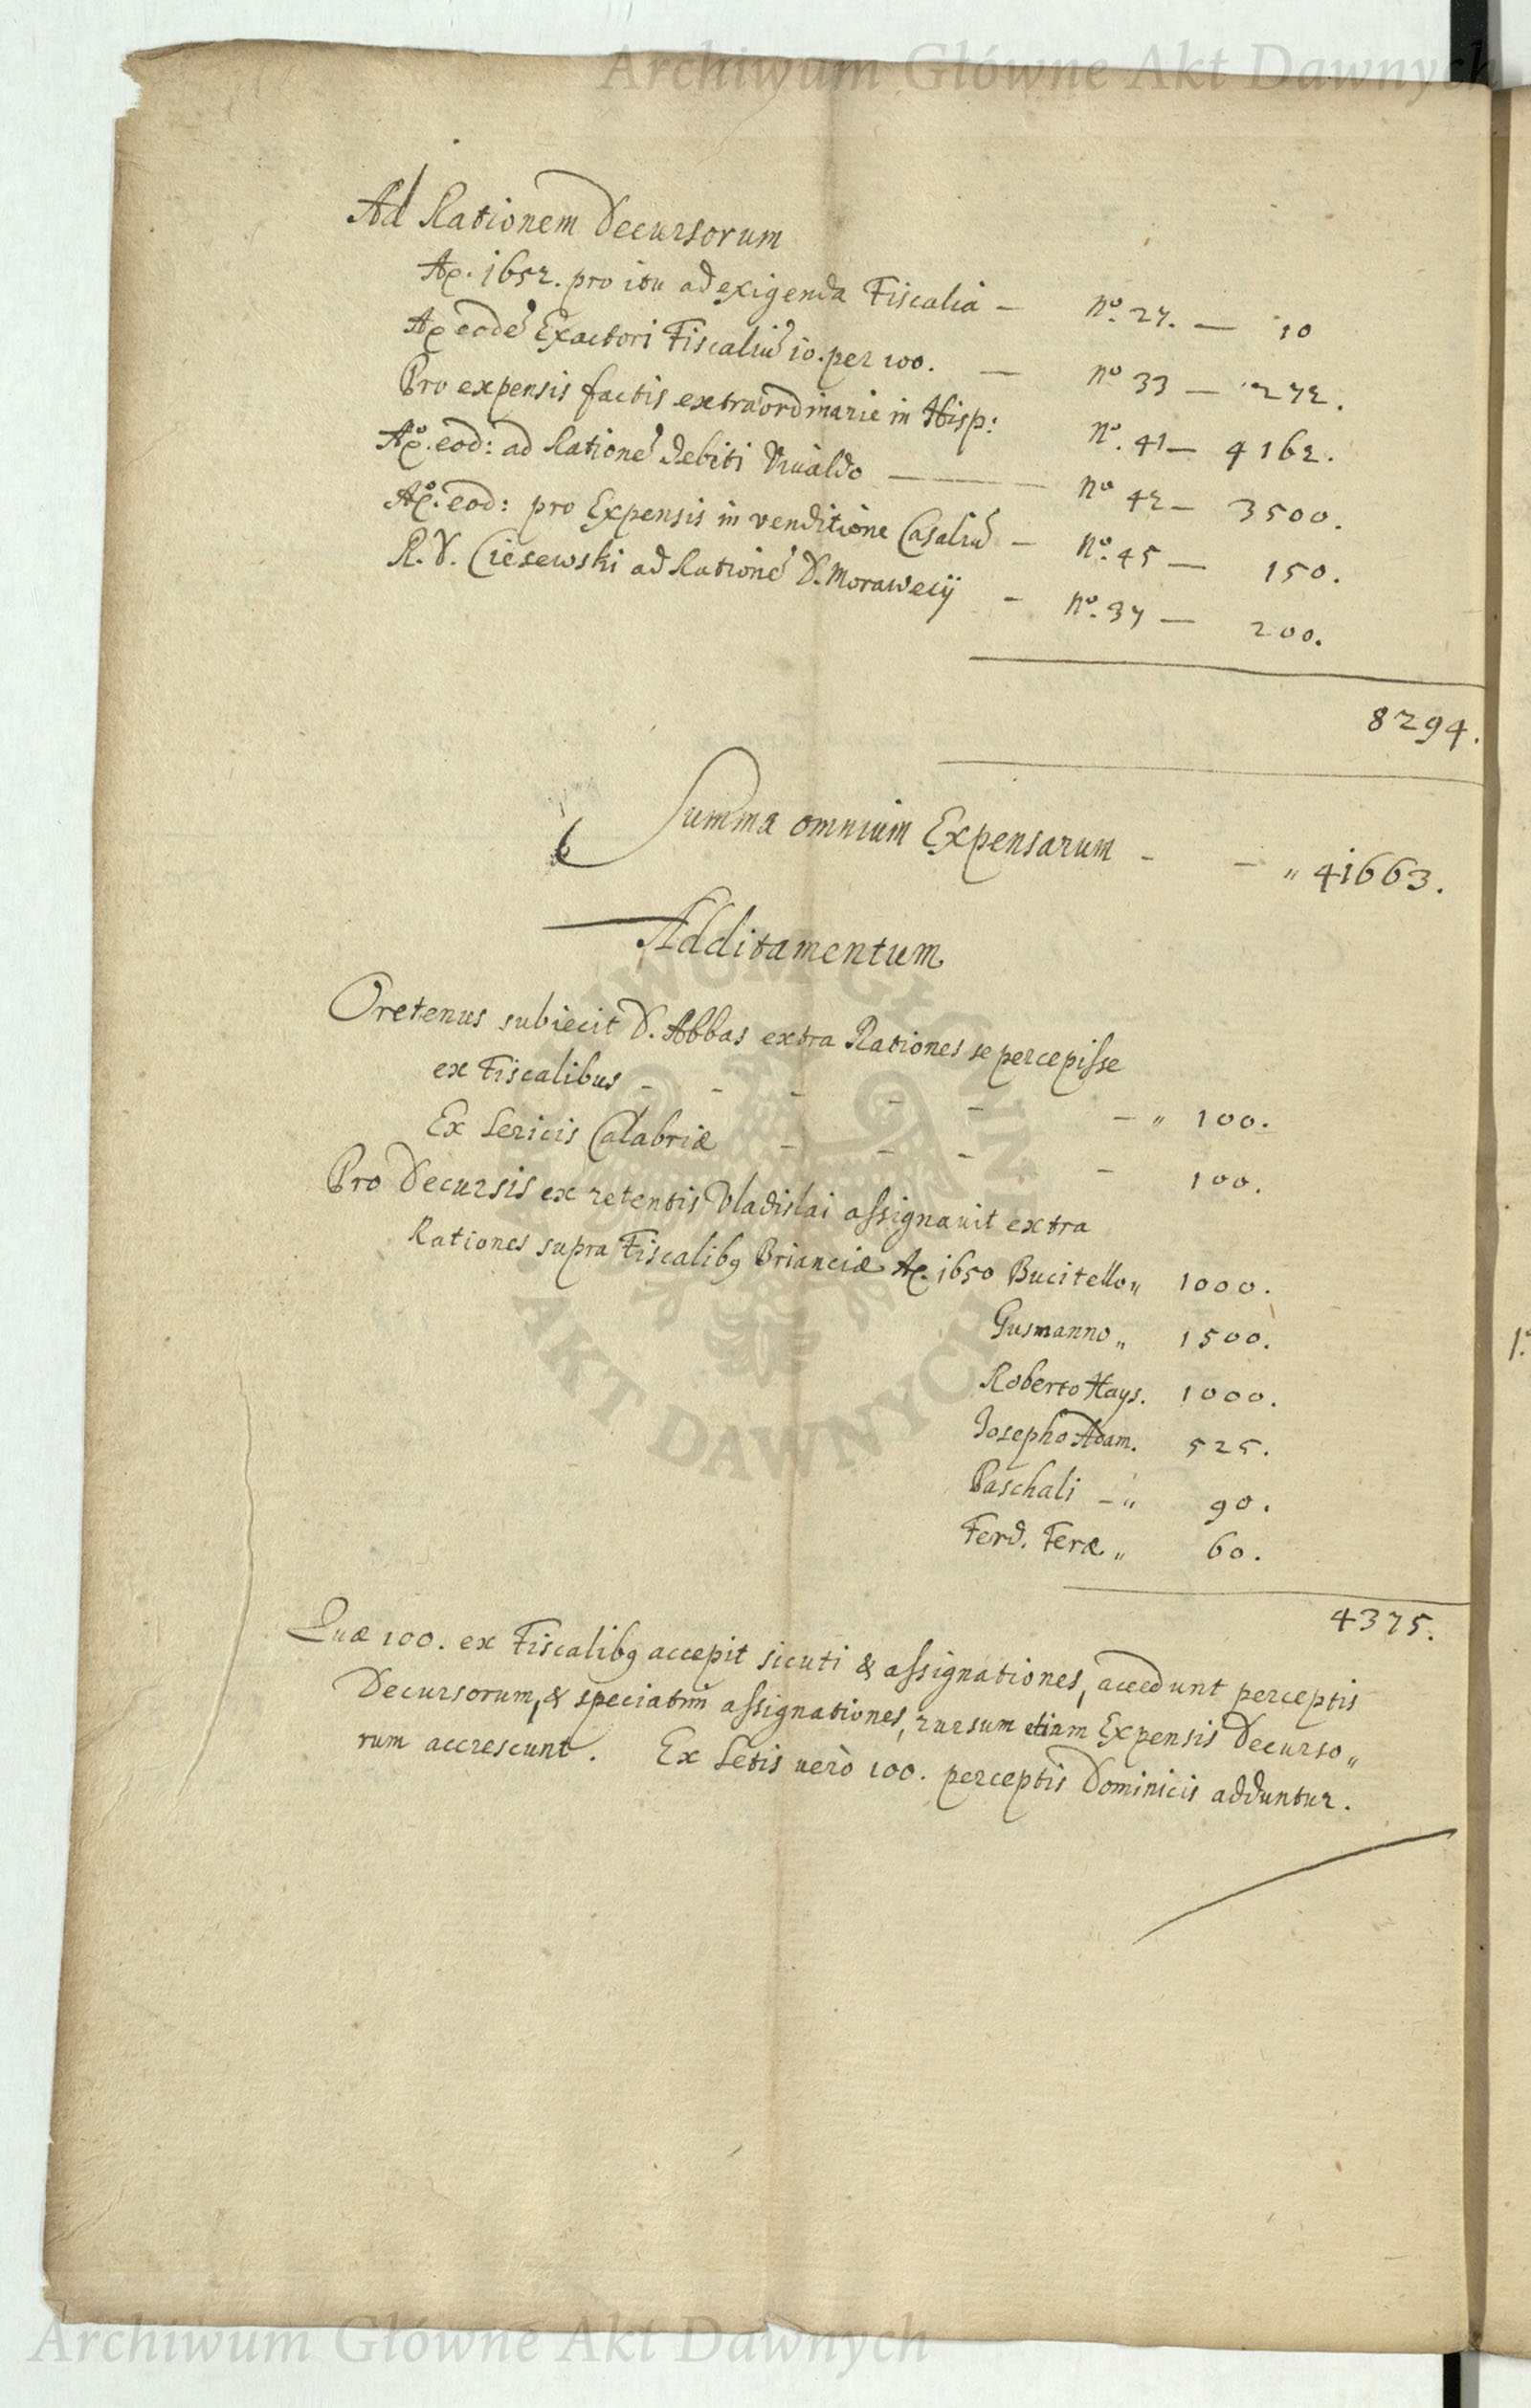 Archiwum Główne Akt Dawnych
Ad Rationem Decursorum
Ao. 1652. pro itu ad exigenda Fiscalia – No. 27. — 10
Ao eodē Exactori Fiscaliū 10. per 100. — No 33 — 272.
Pro expensis factis extraordinarie in Hisp: No. 41 — 4162.
Ao. eod: ad Rationē Debiti Viualdo — No 42 — 3500.
Ao. eod: pro Expensis in venditione Casaliū — No. 45 — 150.
R. D. Ciesewski ad Rationē D. Morawecij – No. 37 — 200.
8294.
Summa omnium Expensarum - - „ 41663.
Additamentum
Oretenus subiecit D. Abbas extra Rationes se percepisse
ex Fiscalibus - - - - - - „ 100.
Ex Sericis Calabriæ - - - - 100.
Pro Decursis ex retentis Vladislai assignauit extra
Rationes supra Fiscalibꝯ Brianciæ Ao. 1650 Bucitello „ 1000.
Gusmanno „ 1500.
Roberto Hays. 1000.
Josepho Adam. 525.
Paschali - „ 90.
Ferd. Feræ „ 60.
4375.
Quæ 100. ex Fiscalibꝯ accepit sicuti & assignationes, accedunt perceptis
Decursorum, & speciatim assignationes, rursum etiam Expensis Decurso„
rum accrescunt. Ex Setis uerò 100. perceptis Dominicis adduntur.
ARCHIWUM GŁÓWNE AKT DAWNYCH
Archiwum Główne Akt Dawnych